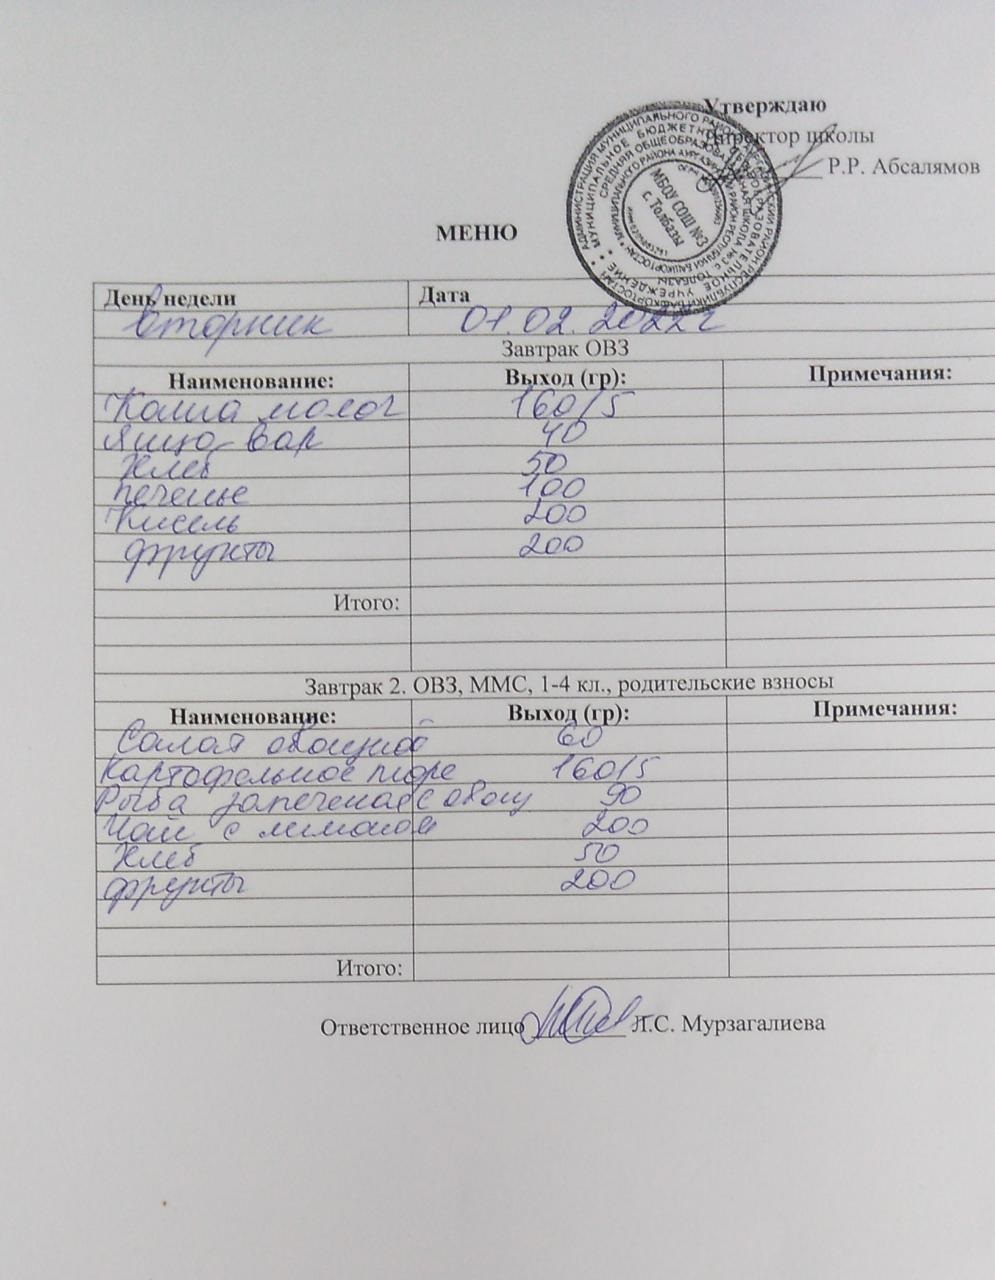 Утверждаю
Директор школы
Р.Р. Абсалямов
МБОУ СОШ №3
с. Толбазы
МЕНЮ
День недели Дата
Вторник 01.02.2022 г
Завтрак ОВЗ
Наименование: Выход (гр): Примечания:
Каша молоч 160/5
Яйцо вар 40
Хлеб 50
печенье 100
Кисель 200
фрукты 200
Итого:
Завтрак 2. ОВЗ, ММС, 1-4 кл., родительские взносы
Наименование: Выход (гр): Примечания:
Салат овощной 60
Картофельное пюре 160/5
Рыба запеченая с овощ 90
Чай с лимоном 200
Хлеб 50
фрукты 200
Итого:
Ответственное лицо Л.С. Мурзагалиева